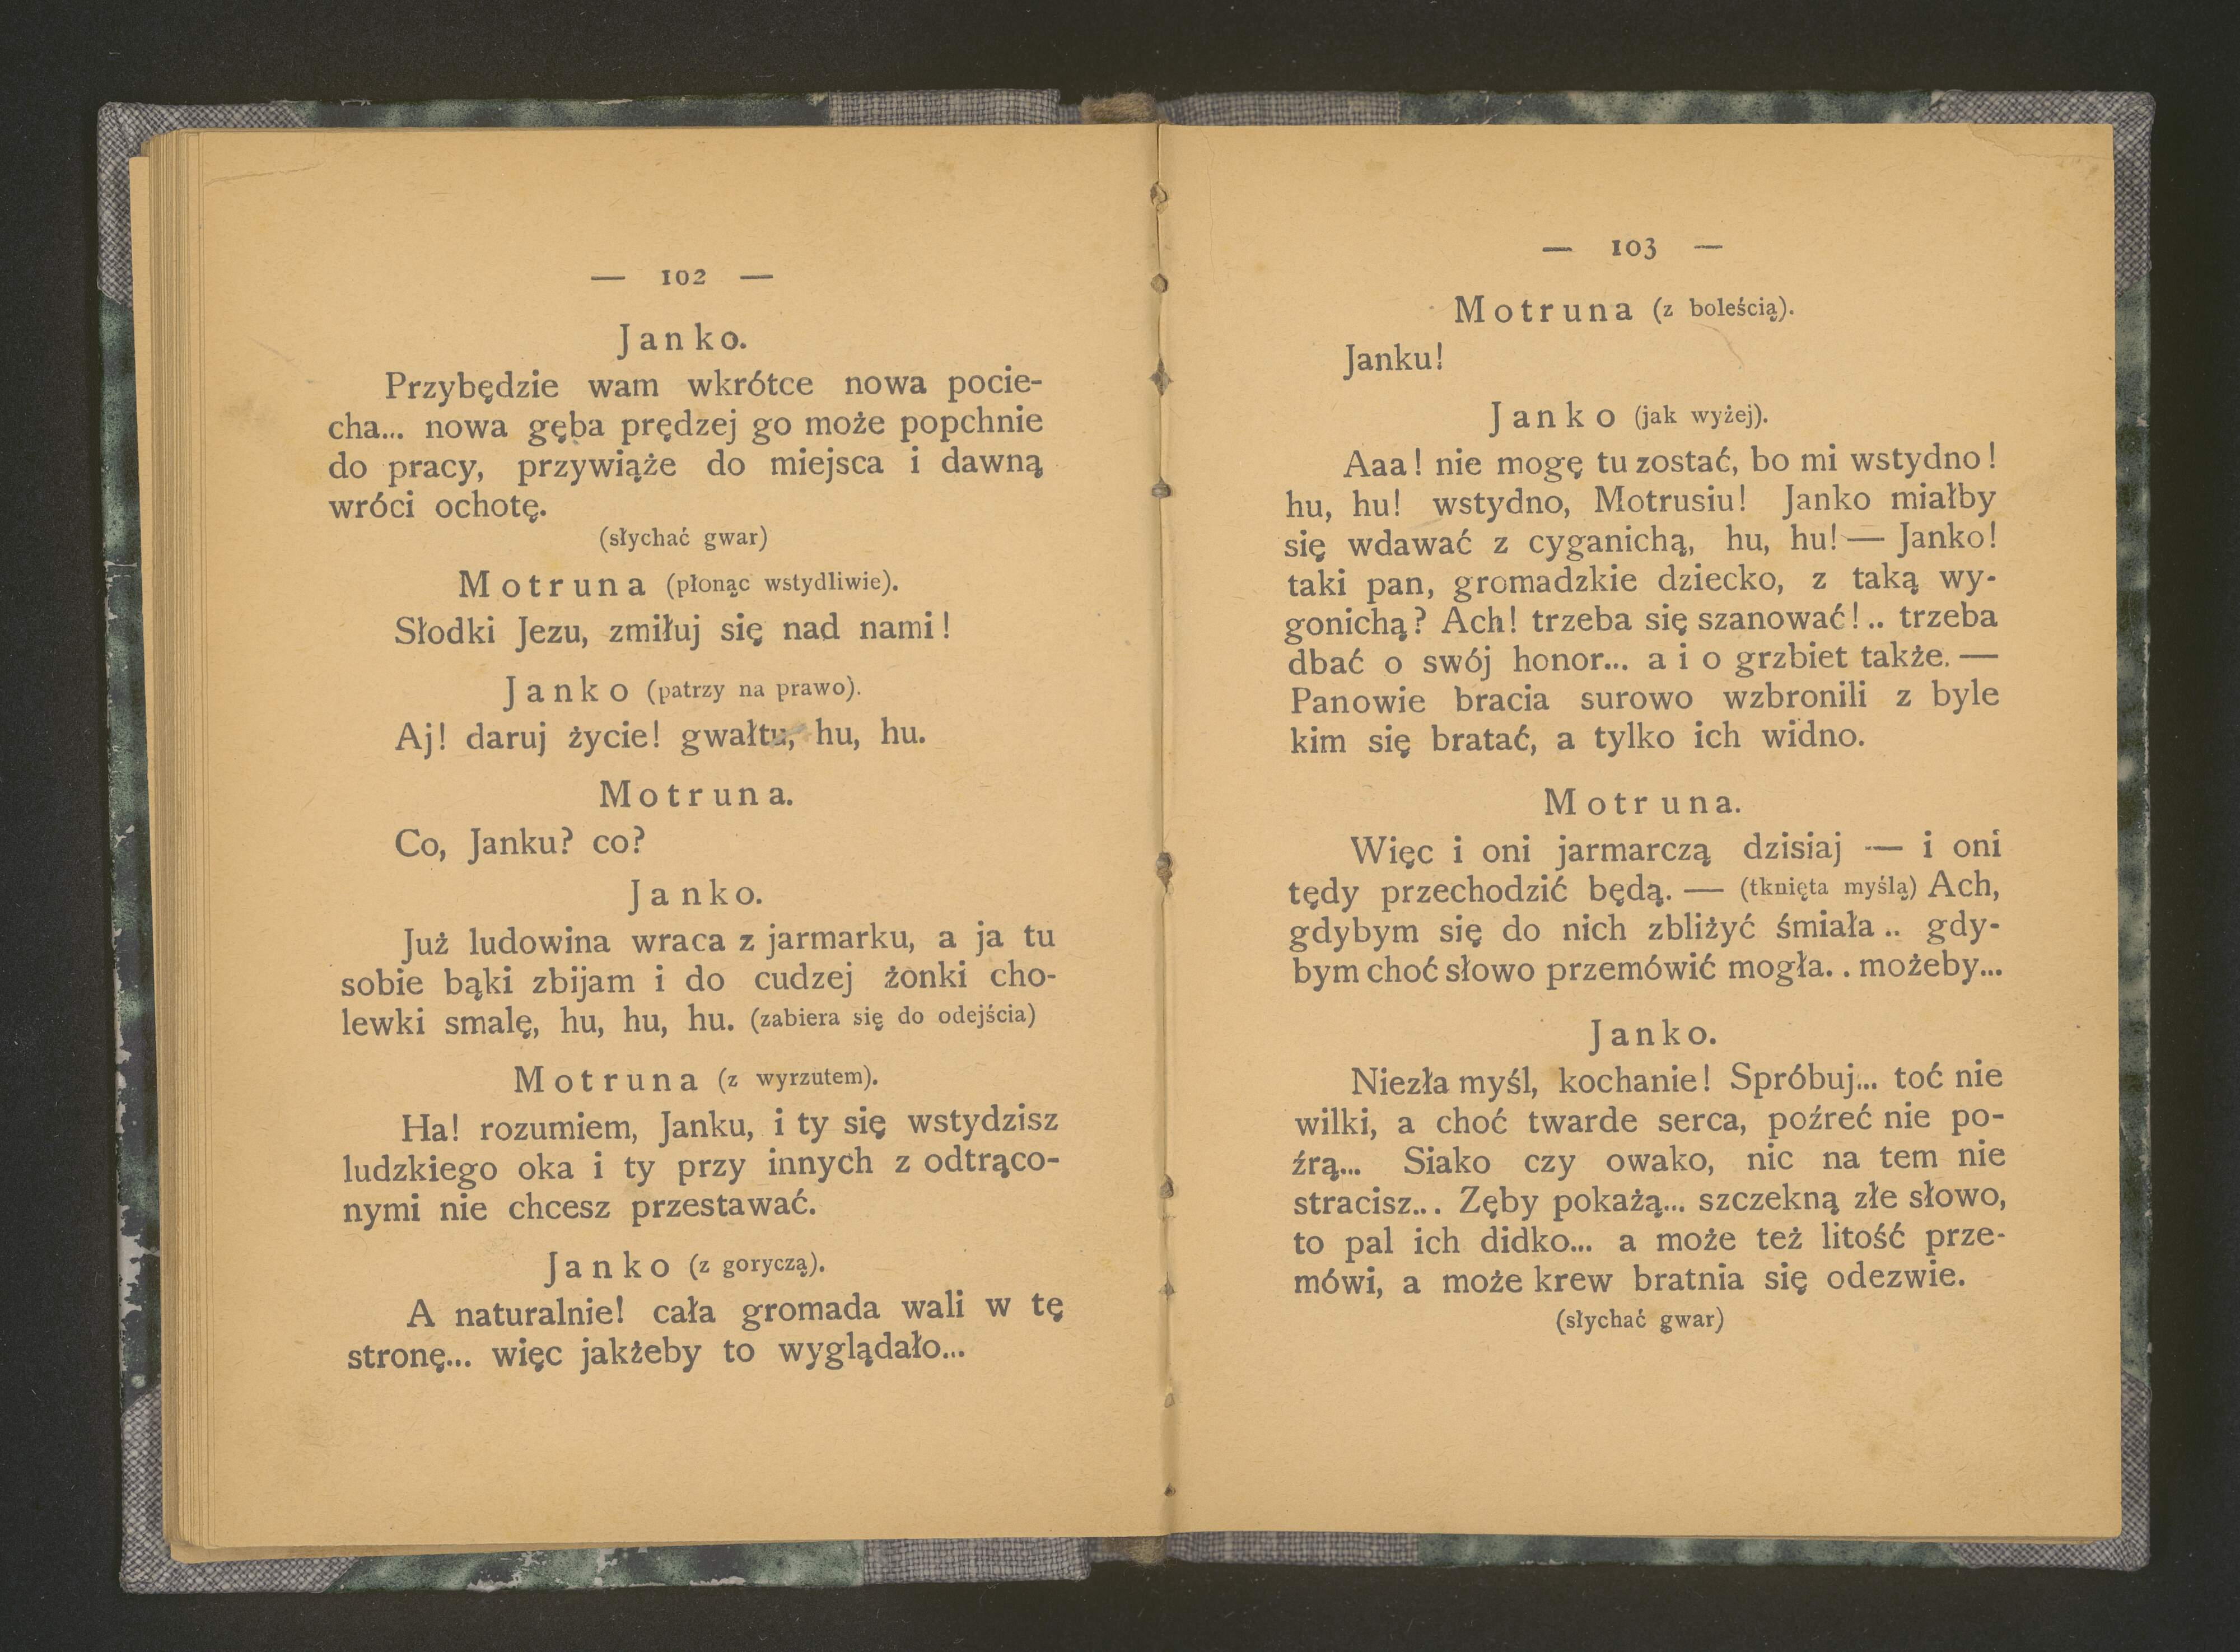 — 102 —
Janko.
Przybędzie wam wkrótce nowa pocie-
cha... nowa gęba prędzej go może popchnie
do pracy, przywiąże do miejsca i dawną
wróci ochotę.
(słychać gwar)
Motruna (płonąc wstydliwie).
Słodki Jezu, zmiłuj się nad nami!
Janko (patrzy na prawo).
Aj! daruj życie! gwałtu, hu, hu.
Motruna.
Co, Janku? co?
Janko.
Już ludowina wraca z jarmarku, a ja tu
sobie bąki zbijam i do cudzej żonki cho-
lewki smalę, hu, hu, hu. (zabiera się do odejścia)
Motruna (z wyrzutem).
Ha! rozumiem, Janku, i ty się wstydzisz
ludzkiego oka i ty przy innych z odtrąco-
nymi nie chcesz przestawać.
Janko (z goryczą).
A naturalnie! cała gromada wali w tę
stronę... więc jakżeby to wyglądało...
— 103 —
Motruna (z boleścią).
Janku!
Janko (jak wyżej).
Aaa! nie mogę tu zostać, bo mi wstydno!
hu, hu! wstydno, Motrusiu! Janko miałby
się wdawać z cyganichą, hu, hu! — Janko!
taki pan, gromadzkie dziecko, z taką wy-
gonichą? Ach! trzeba się szanować!.. trzeba
dbać o swój honor... a i o grzbiet także. —
Panowie bracia surowo wzbronili z byle
kim się bratać, a tylko ich widno.
Motruna.
Więc i oni jarmarczą dzisiaj — i oni
tędy przechodzić będą. — (tknięta myślą) Ach,
gdybym się do nich zbliżyć śmiała.. gdy-
bym choć słowo przemówić mogła.. możeby...
Janko.
Niezła myśl, kochanie! Spróbuj... toć nie
wilki, a choć twarde serca, poźreć nie po-
źrą... Siako czy owako, nic na tem nie
stracisz... Zęby pokażą... szczekną złe słowo,
to pal ich didko... a może też litość prze-
mówi, a może krew bratnia się odezwie.
(słychać gwar)